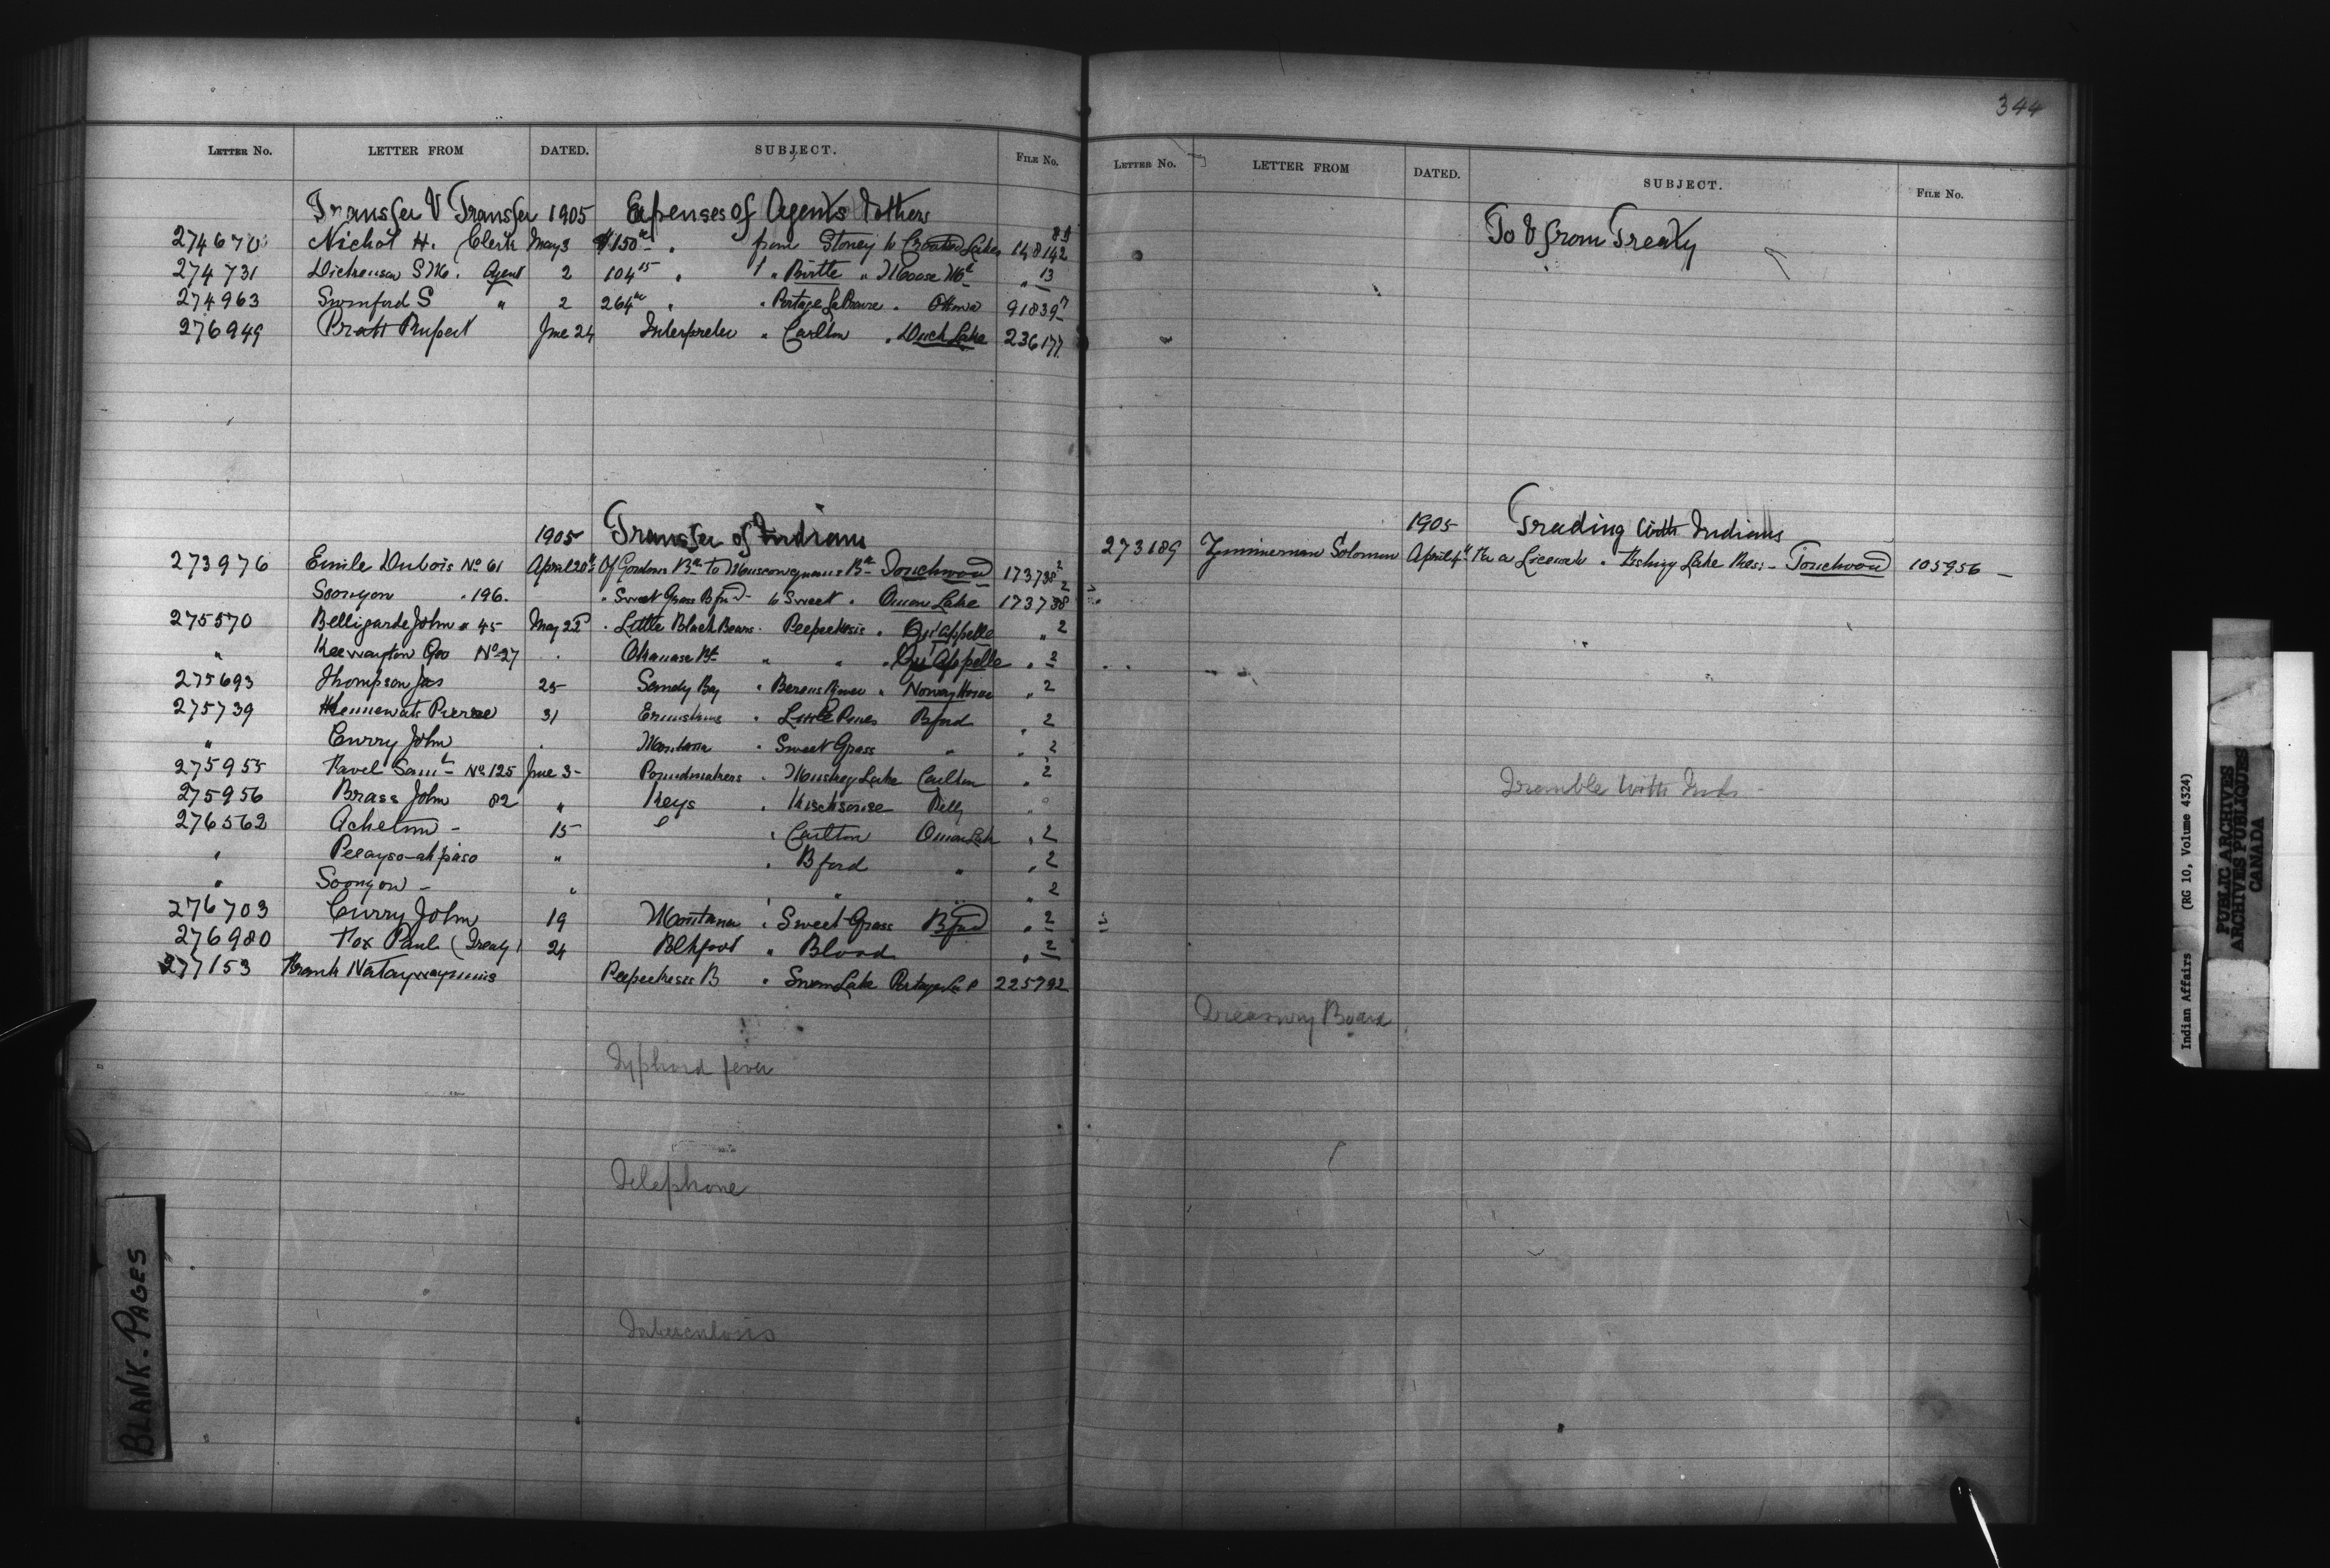 344
LETTER NO. LETTER FROM DATED. SUBJECT. FILE No.
Transfer & Transfer 1905 Expenses of Agents & others
274670 Nichol H. Clerk May 3 $150 " from Stoney to Crooked Lakes 148142
274731 Dickenson S M. Agent 2 104 15 " " Birtle " Moose Mt " 13
274963 Swinford S " 2 264 " " Portage La Prairie " Ottawa 91839 7
276949 Pratt Rupert June 24 Interpreter " Carlton " Duck Lake 236177
1905 Transfer of Indians
273976 Emile Dubois No 61 April 20 Of Gordons Bd to Muscowequans Bd Touchwood 173738 2
Soongon " 196. " Sweet Grass Bford to Sweet " Onion Lake 173738 2
275570 Belligarde John " 45 May 22 " Little Black Bears " Peepeekesis " Qu'Appelle " 2
" Keewayton Geo No 27 " Okanase Bd " " " Qu'Appelle " 2
275693 Thompson Jas 25 Sandy Bay " Berens River " Norway House " 2
275739 Pierre 31 Ermine " Little Pines Bford " 2
" Curry John " Montana " Sweet Grass " " 2
275955 Favel Saml No 125 June 3 Poundmakers " Muskeg Lake Carlton " 2
275956 Brass John 82 " Keys " Pelly "
276562 Achetum - 15 " Carlton Onion Lake " 2
" Peeayso-ah-piaso " " Bford " " 2
" Soongon - " " " 2
276703 Curry John 19 Montana " Sweet Grass Bford " 2
276980 Fox Paul (Treaty) 24 Blkfoot " Blood " 2
277153 Frank Peepeekesis B " Swan Lake Portage La P 225792
Typhoid fever
Telephone
Tuberculosis
LETTER NO. LETTER FROM DATED. SUBJECT. FILE No.
To & from Treaty
1905 Trading with Indians
273189 Zimmerman Solomon April 4 For a License to " Fishing Lake Res: - Touchwood 105956 -
Trouble with Inds -
Treasury Board
BLANK-PAGES
Indian Affairs (RG 10, Volume 4324)
PUBLIC ARCHIVES
ARCHIVES PUBLIQUES
CANADA